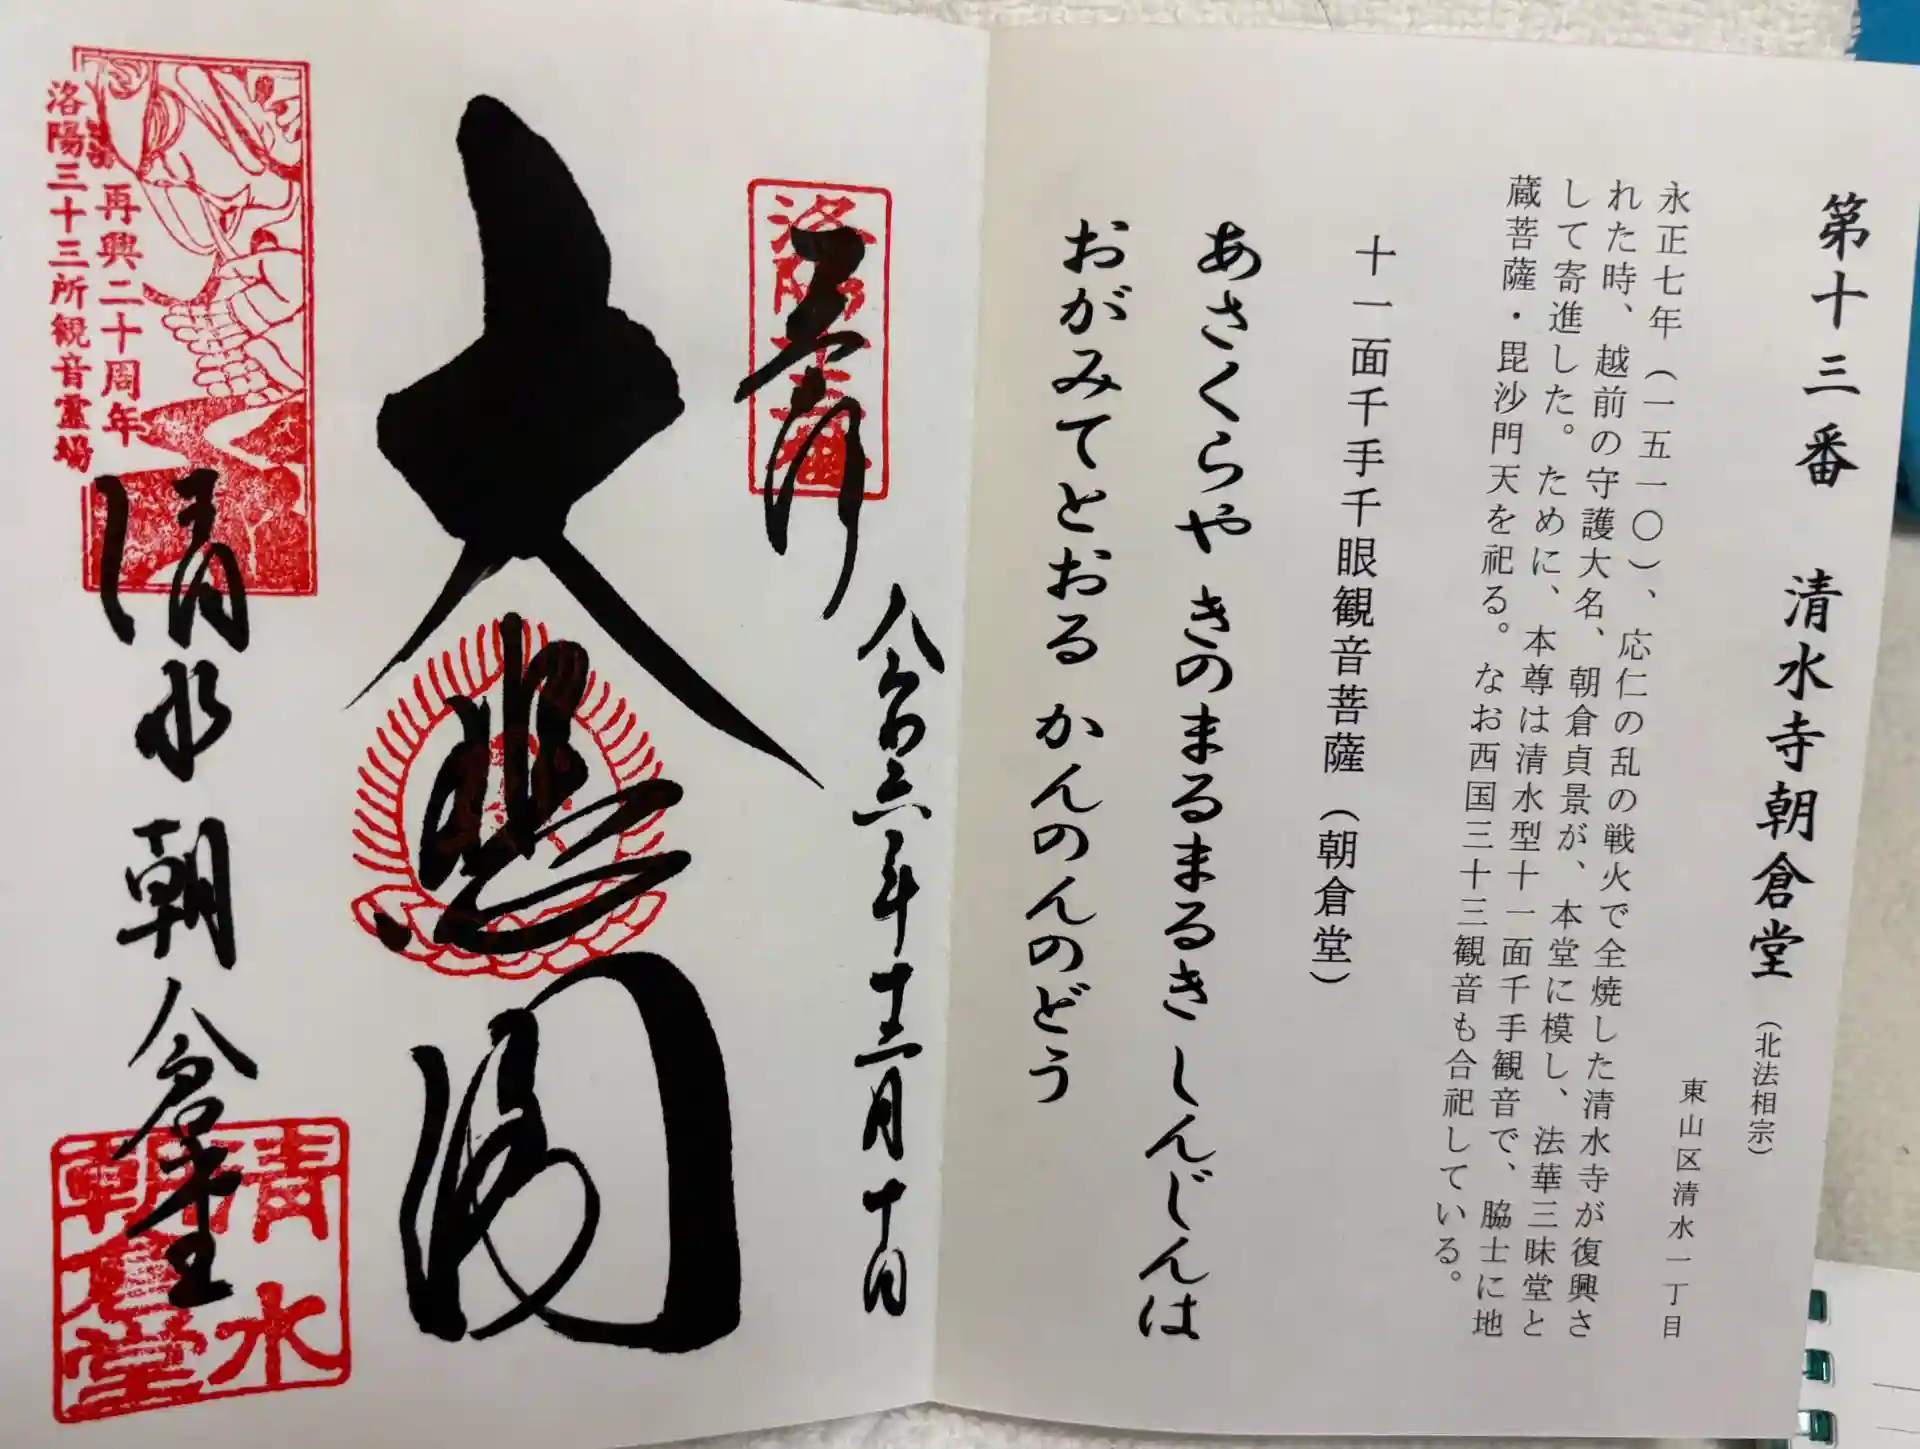 第十三番 清水寺朝倉堂（北法相宗）
東山区清水一丁目
永正七年（一五一〇）、応仁の乱の戦火で全焼した清水寺が復興さ
れた時、越前の守護大名、朝倉貞景が、本堂に模し、法華三昧堂と
して寄進した。ために、本尊は清水型十一面千手観音で、脇士に地
蔵菩薩・毘沙門天を祀る。なお西国三十三観音も合祀している。
十一面千手千眼観音菩薩（朝倉堂）
あさくらや きのまるまるき しんじんは
おがみてとおる かんのんのどう
奉拝
洛陽十三番
令和六年十二月十日
大悲閣
再興二十周年
洛陽三十三所観音霊場
清水朝倉堂
清水
朝倉堂